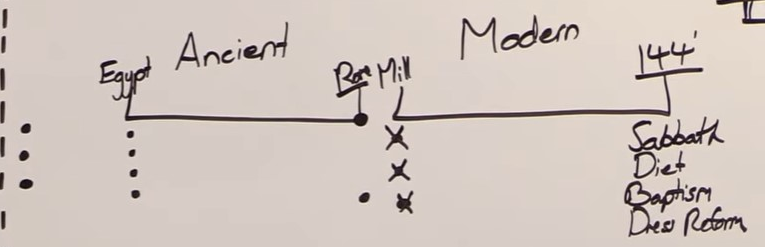 Ancient
Modern
Egypt
Mill
144'
Sabbath
Diet
Baptism
Dress Reform